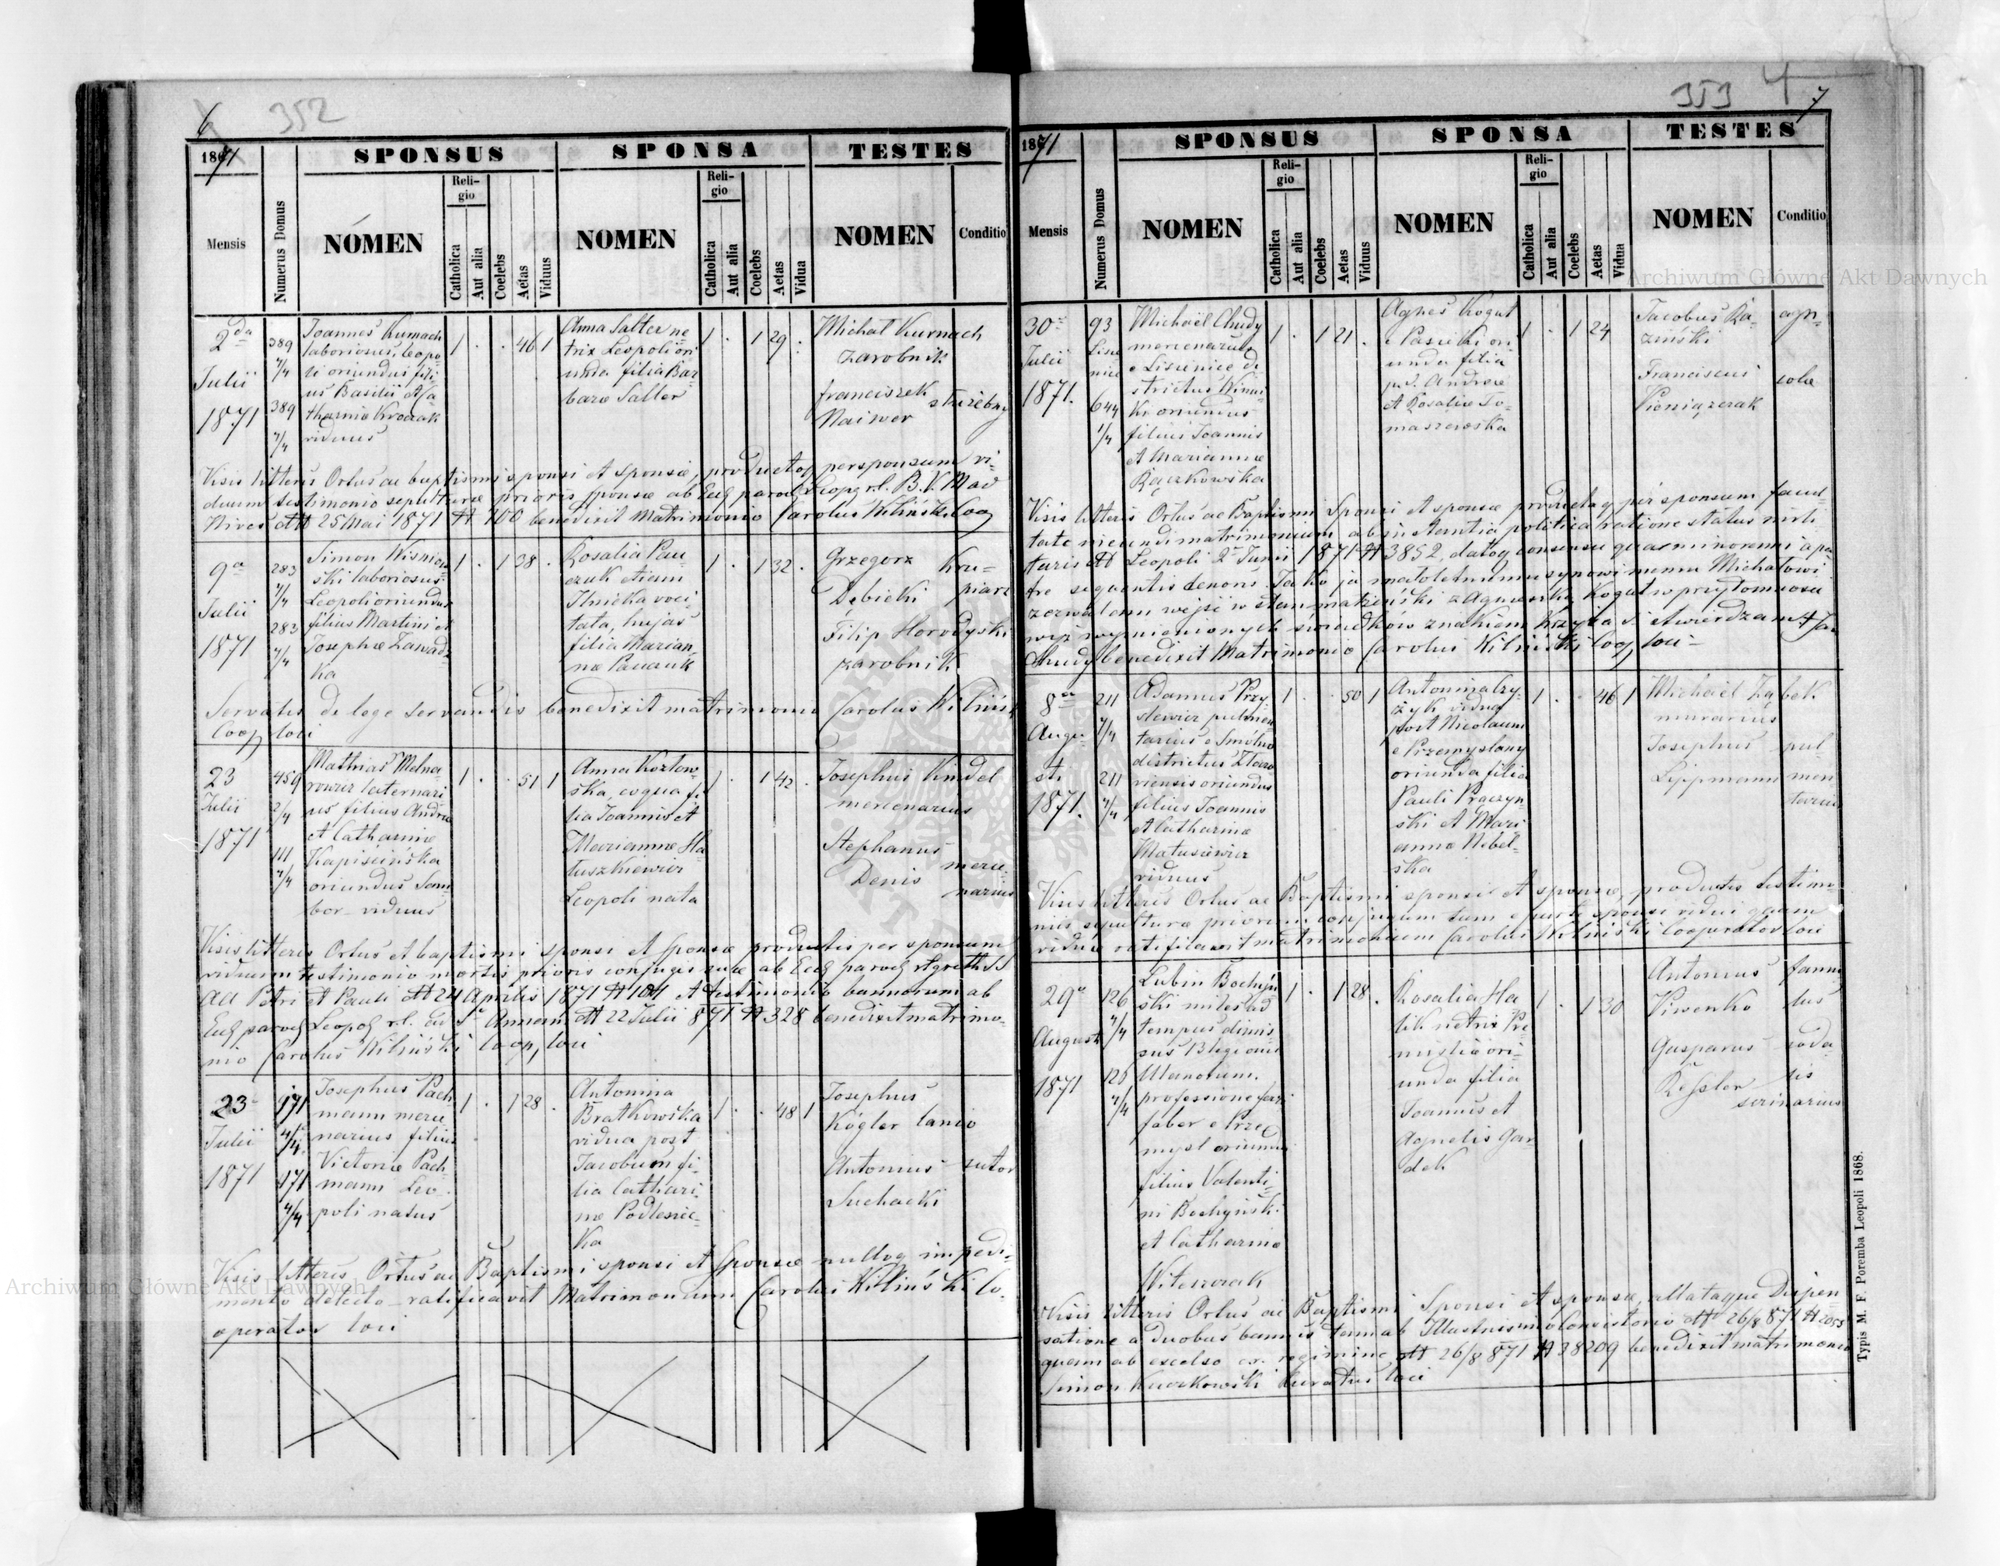 6 352
1871 SPONSUS SPONSA TESTES
Mensis Numerus Domus NOMEN Religio Catholica Aut alia Coelebs Aetas Viduus NOMEN Religio Catholica Aut alia Coelebs Aetas Vidua NOMEN Conditio
2da Julii 1871
389 4/4
389 4/4
Joannes Kurnach
laboriosus, Leopo-
li oriundus fili-
us Basilii et Ca-
tharinæ Kroczak
viduus
1 . . 46 1
Anna Salter ne-
trix Leopoli ori-
unda filia Bar-
baræ Salter
1 . 1 29 .
Michał Kurnach
zarobnik
Franciszek służebny
Naiwer
Visis litteris Ortus ac baptismi sponsi et sponsæ, productoq per sponsum vi-
duum testimonio sepulturæ prioris sponsæ ab Eccl paroch Leopg rl. B.V. Mad
Nives dtto 25 Mai 1871 # 100 benedixit Matrimonio Carolus Kiliński Coop
9a Julii 1871
283 4/4
283 4/4
Simon Wiśniew-
ski laboriosus
Leopoli oriundus
filius Martini et
Josephæ Zawadz-
ka
1 . 1 38 .
Rosalia Pau-
czuk etiam
Ilnicka voci-
tata, hujas
filia Marian-
næ Pauczuk
1 . 1 32 .
Grzegorz Kru-
Dębicki piarz
Filip Horodyski
zarobnik
Servatis de lege servandis benedixit matrimonio Carolus Kiliński
Coop loci
23 Julii 1871
459 2/4
111 4/4
Mathias Melna-
rowicz laternari-
us filius Andreæ
et Catharinæ
Kapiścińska
oriundus Sam-
bor viduus
1 . . 51 1
Anna Kozłow-
ska, coqua fi-
lia Joannis et
Mariannæ Ha-
luszkiewicz
Leopoli nata
1 . 1 42 .
Josephus Kindel
mercenarius
Stephanus merce-
Denis narius
Visis litteris Ortus et baptismi sponsi et sponsæ productis per sponsum
viduum testimonio mortis prioris conjugis suæ ab Eccl paroch SS
Petri et Pauli dtto 24 Aprilis 1871 # 104 et testimonio bannorum ab
Eccl paroch Leopg rl. ad S. Annam dtto 22 Julii 871 # 328 benedixit matrimo-
nio Carolus Kiliński Coop, loci
23 Julii 1871
171 4/4
171 4/4
Josephus Pach-
mann merce-
narius filius
Victoriæ Pach-
mann Leo-
poli natus
1 . 1 28 .
Antonina
Bratkowska
vidua post
Jacobum fi-
lia Cathari-
næ Podlesiec-
ka
1 . . 48 1
Josephus
Kögler lanio
Antonius sutor
Suchacki
Visis litteris Ortus ac Baptismi sponsi et sponsæ nulloq impedi-
mento detecto ratificavit Matrimonium Carolus Kiliński Co-
operator loci
353 4 7
1871 SPONSUS SPONSA TESTES
Mensis Numerus Domus NOMEN Religio Catholica Aut alia Coelebs Aetas Viduus NOMEN Religio Catholica Aut alia Coelebs Aetas Vidua NOMEN Conditio
30 Julii 1871.
93
644 1/4
Michaël Chudy
mercenarius
e Lisienice di-
strictus Winni-
ki oriundus
filius Joannis
et Mariannæ
Rączkowska
1 . 1 21 .
Agnes Kogut
e Pasieki ori-
unda filia
Andreæ
et Rosaliæ To-
maszewska
1 . 1 24
Jacobus Ka-
ziński
Franciscus
Pieniążczak
Visis litteris Ortus ac Baptismi Sponsi et sponsæ productaq per sponsum facul-
tate ineundi matrimonium ab instantia politica ratione status mili-
taris dtto Leopoli 2 Junii 1871 # 3852, datoq consensu quasi minorenni a pa-
tre sequentis tenoris. Jako ja małoletniemu synowi memu Michałowi
zezwalam wejść w stan małżeński z Agnieszką Kogut w przytomności
wyż wymienionych świadków znakiem krzyża ś. stwierdzam + Jan
Chudy benedixit Matrimonio Carolus Kiliński Coop, loci
8a Augusti 1871.
211 4/4
211 4/4
Adamus Przy-
slewicz pulmen-
tarius e Smólno
districtus Złoczo-
viensis oriundus
filius Joannis
et Catharinæ
Matusiewicz
viduus
1 . . 50 1
Antonina Czy-
żyk vidua
post Nicolaum
e Przemyslany
oriunda filia
Pauli Praczyn-
ski et Mari-
anna Nebel-
ska
1 . . 46 1
Michaël Ząbek
murarius
Josephus pul-
Lippmann men-
tarius
Visis litteris Ortus ac Baptismi sponsi et sponsæ, productis testimo-
niis sepulturæ priorum conjugum tum e parte sponsi vidui quam
viduæ ratificavit matrimonium Carolus Kiliński Cooperator loci
29a Augusti 1871
126 4/4
126 4/4
Lubin Bochyń-
ski miles ad
tempus dimis-
sus 13 legionis
Ulanorum.
professione fer.
faber e Prze-
mysl oriundus
filius Valenti-
ni Bochyński
et Catharinæ
Witeszczak
1 . 1 28 .
Rosalia Ha-
lik netrix Pre-
misliæ ori-
unda filia
Joannis et
Agnetis Gar-
dek
1 . 1 30
Antonius famu-
Kiwenko lus
Gasparus soda-
Kessler lis
serinarius
Visis litteris Ortus ac Baptismi Sponsi et sponsæ, allataque Dispen-
satione a duobus bannis tum ab Illustrissimo Consistorio dtto 26/8 871 # 2053
quam ab excelso c.r. regimine dtto 26/8 871 # 38209 benedixit matrimonio
Simon Kuczkowski Curatus loci
Typis M. F. Poremba Leopoli 1868.
Archiwum Główne Akt Dawnych
Archiwum Główne Akt Dawnych